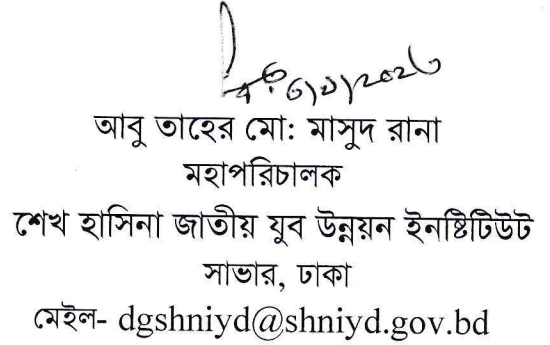 আবু তাহের মো: মাসুদ রানা
মহাপরিচালক
শেখ হাসিনা জাতীয় যুব উন্নয়ন ইনষ্টিটিউট
সাভার, ঢাকা
মেইল- dgshniyd@shniyd.gov.bd